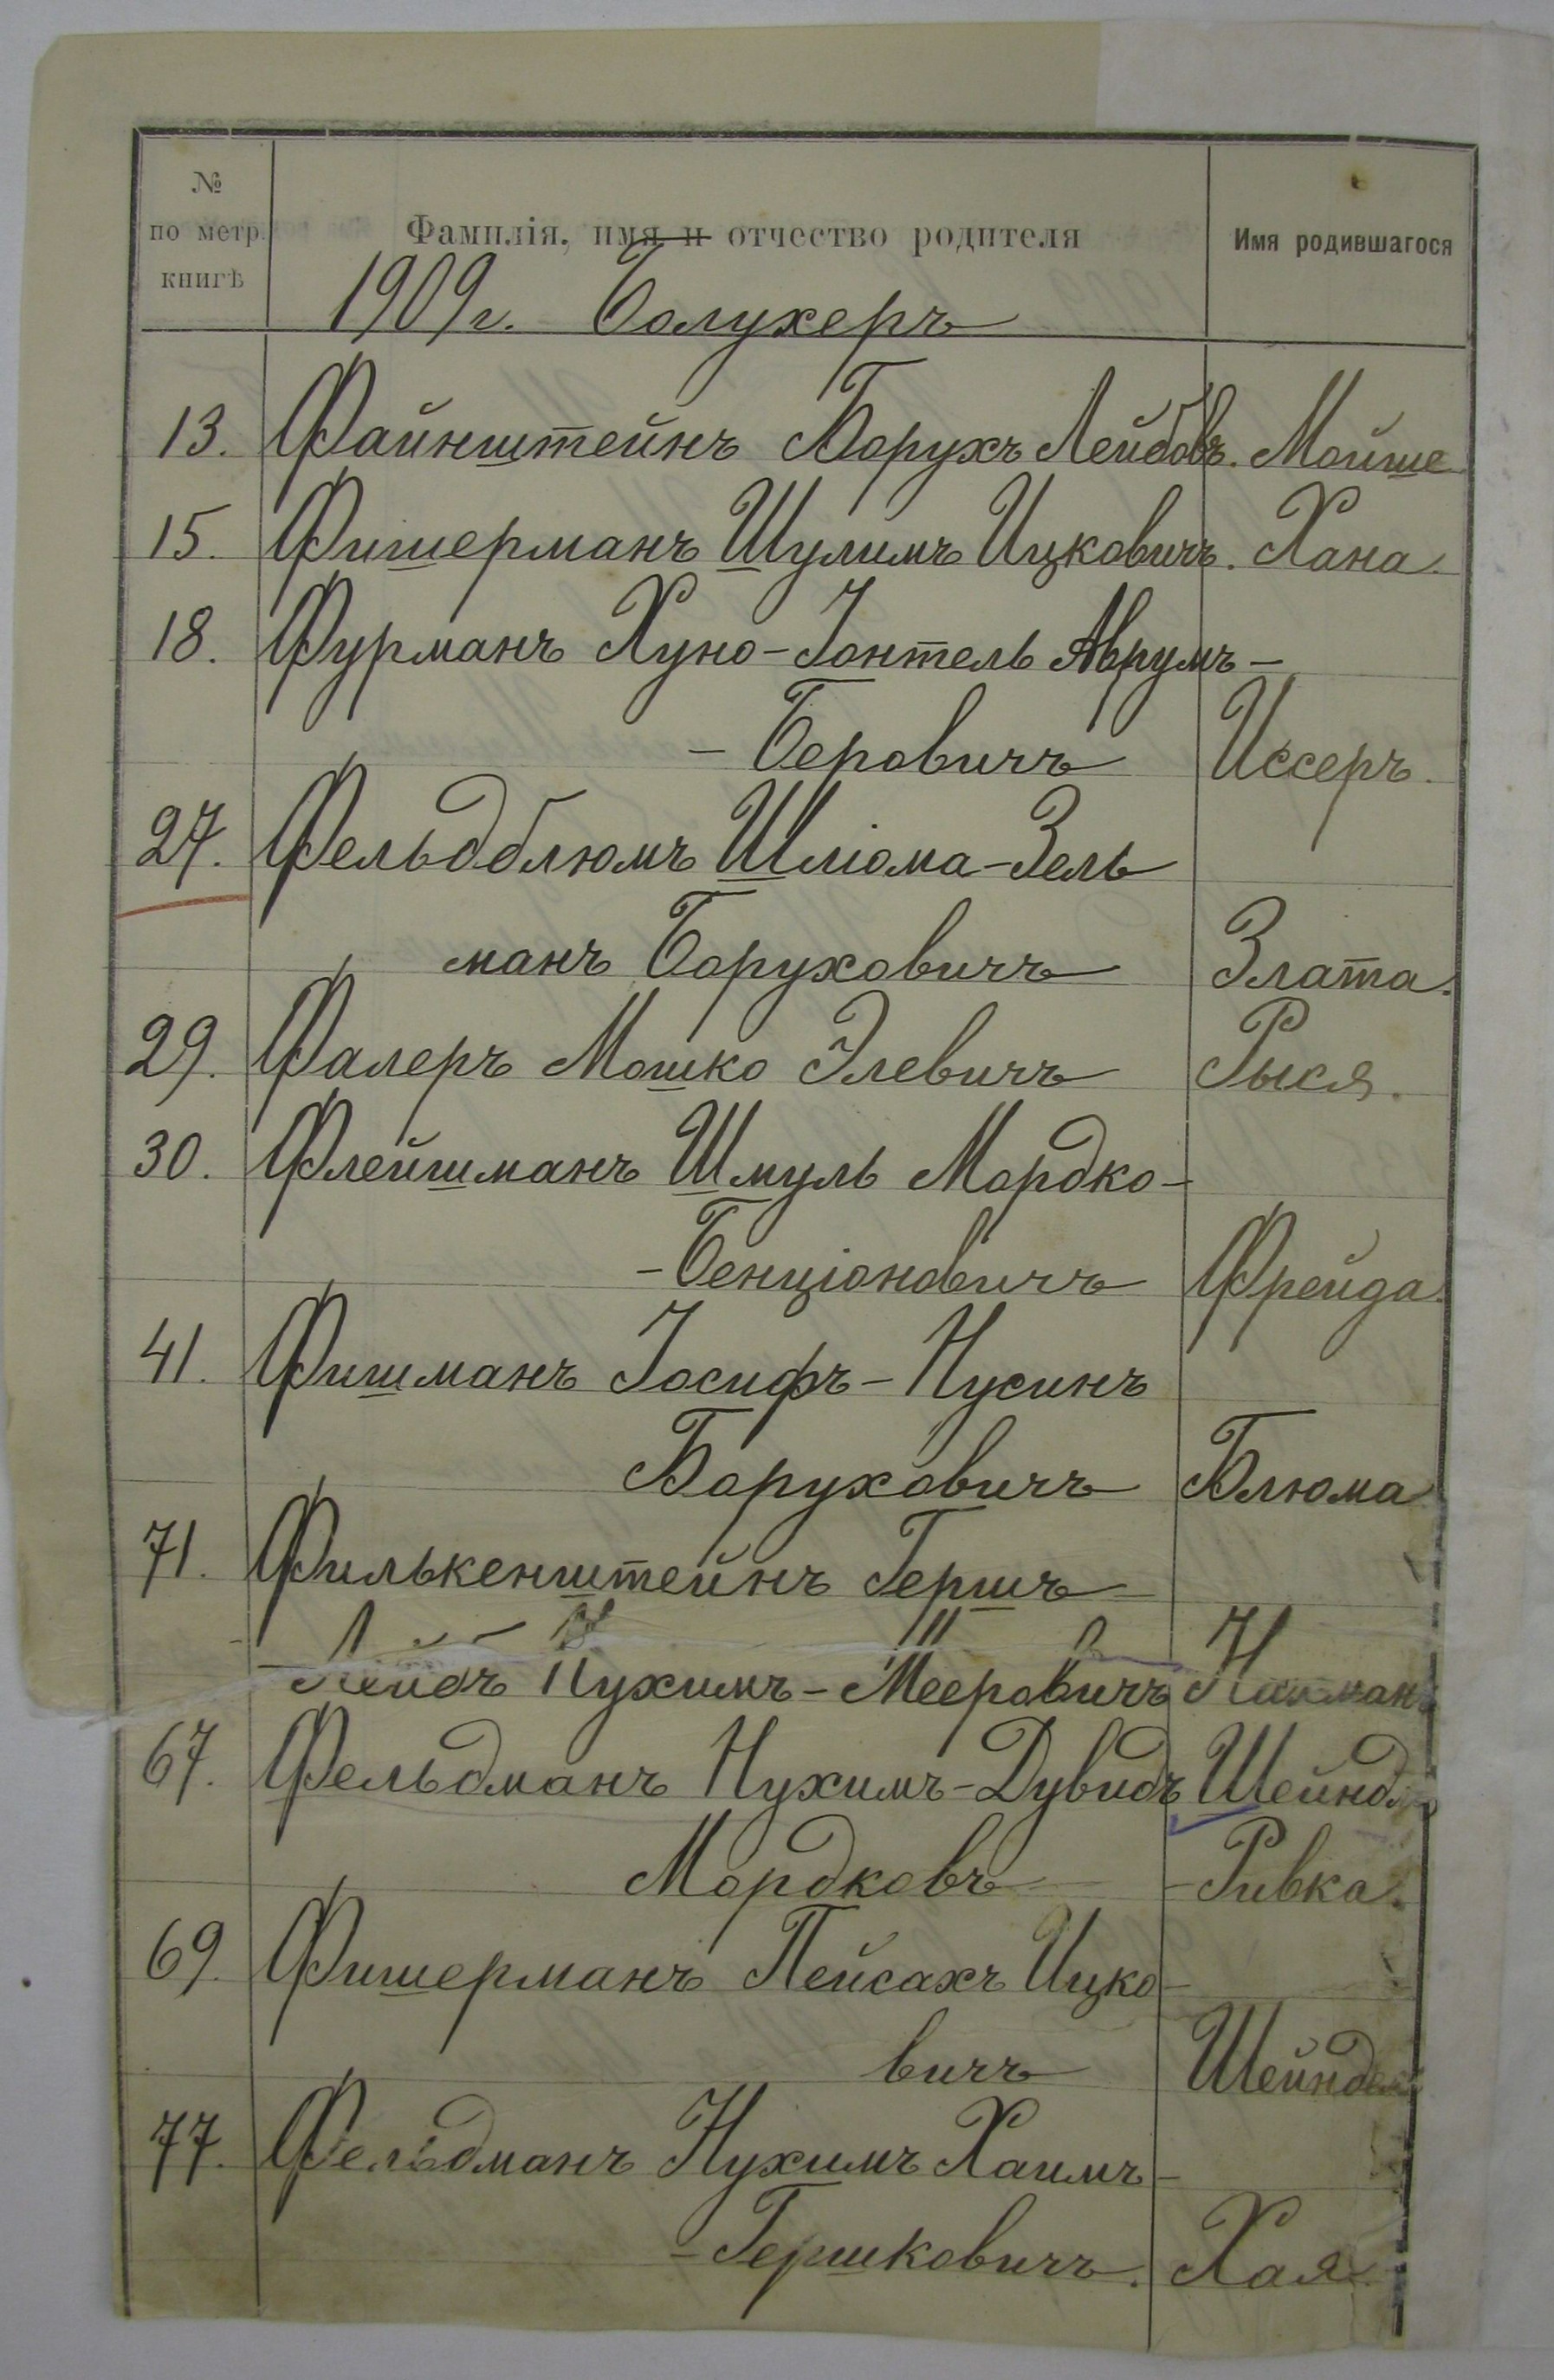 №
по метр.
книгѣ
Фамилія, имя и отчество родителя
Имя родившагося
1909 г. Болухеръ
13. Файнштейнъ Борухъ Лейбовъ. Мойше
15. Фишерманъ Шулимъ Ицковичъ. Хана.
18. Фурманъ Хуно-Іонтель Аврумъ-
-Беровичъ Иссеръ.
27. Фельдблюмъ Шліома-Зель
манъ Боруховичъ Злата.
29. Фалеръ Мошко Элевичъ Рыся.
30. Флейшманъ Шмуль Мордко-
-Бенціоновичъ Фрейда.
41. Фишманъ Іосифъ-Нусинъ
Боруховичъ Блюма
71. Филькенштейнъ Гершъ
-Лейбъ Нухимъ-Мееровичъ
67. Фельдманъ Нухимъ-Дувидъ Шейндля
Мордковъ -Ривка.
69. Фишерманъ Пейсахъ Ицко-
вичъ Шейндля
77. Фельдманъ Нухимъ Хаимъ-
-Гершковичъ. Хая.